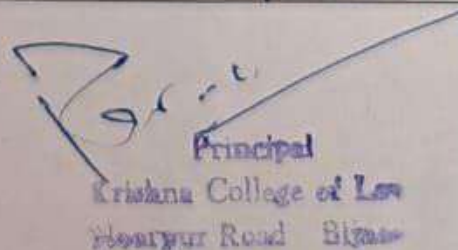 Principal
Krishna College of Law
Noorpur Road Bijnor